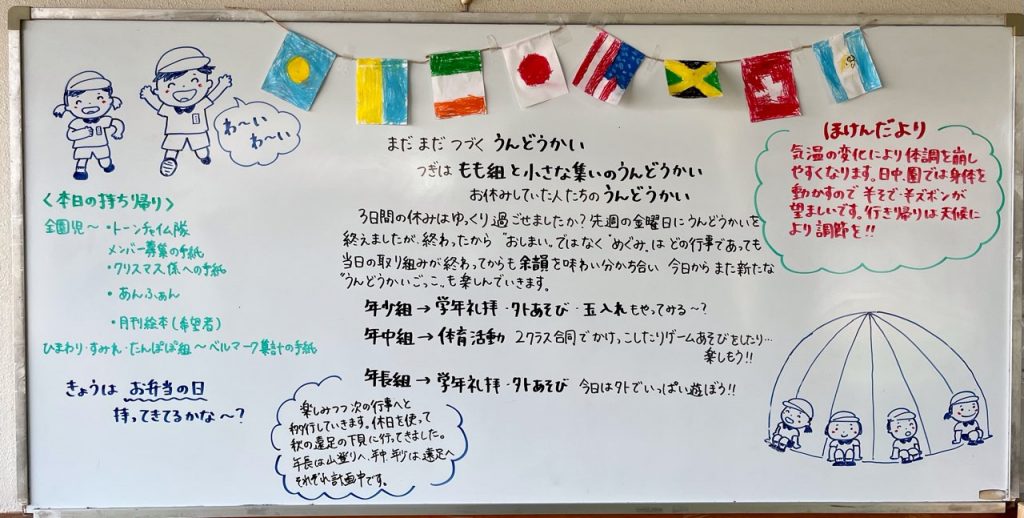 わ〜い
わ〜い
まだ まだ つづく うんどうかい
つぎは もも組 と 小さな集い のうんどうかい
お休みしていた人たちの うんどうかい
3日間の休みはゆっくり過ごせましたか？先週の金曜日にうんどうかいを
終えましたが、終わったから “おしまい„ではなく“めぐみ„は どの行事であっても
当日の取り組みが終わってからも 余韻 を味わい分かち合い 今日から また新たな
“うんどうかいごっこ„も楽しんでいきます。
年少組→学年礼拝・外あそび・玉入れもやってみる〜？
年中組→体育活動 2クラス合同でかけっこしたりゲームあそびをしたり…
楽しもう!!
年長組→学年礼拝・外あそび 今日は外でいっぱい遊ぼう!!
〈本日の持ち帰り〉
全園児〜・トーンチャイム隊
メンバー募集の手紙
・クリスマス係への手紙
・あんふぁん
・月刊絵本(希望者)
ひまわり・すみれ・たんぽぽ組〜ベルマーク集計の手紙
きょうは お弁当の日
持ってきてるかな〜？
楽しみつつ次の行事へと
移行していきます。休日を使って
秋の遠足の下見に行ってきました。
年長は山登りへ、年中、年少は遠足へ
それぞれ計画中です。
ほけんだより
気温の変化により体調を崩し
やすくなります。日中、園では身体を
動かすので 半そで・半ズボンが
望ましいです。行き帰りは天候に
より調節を!!